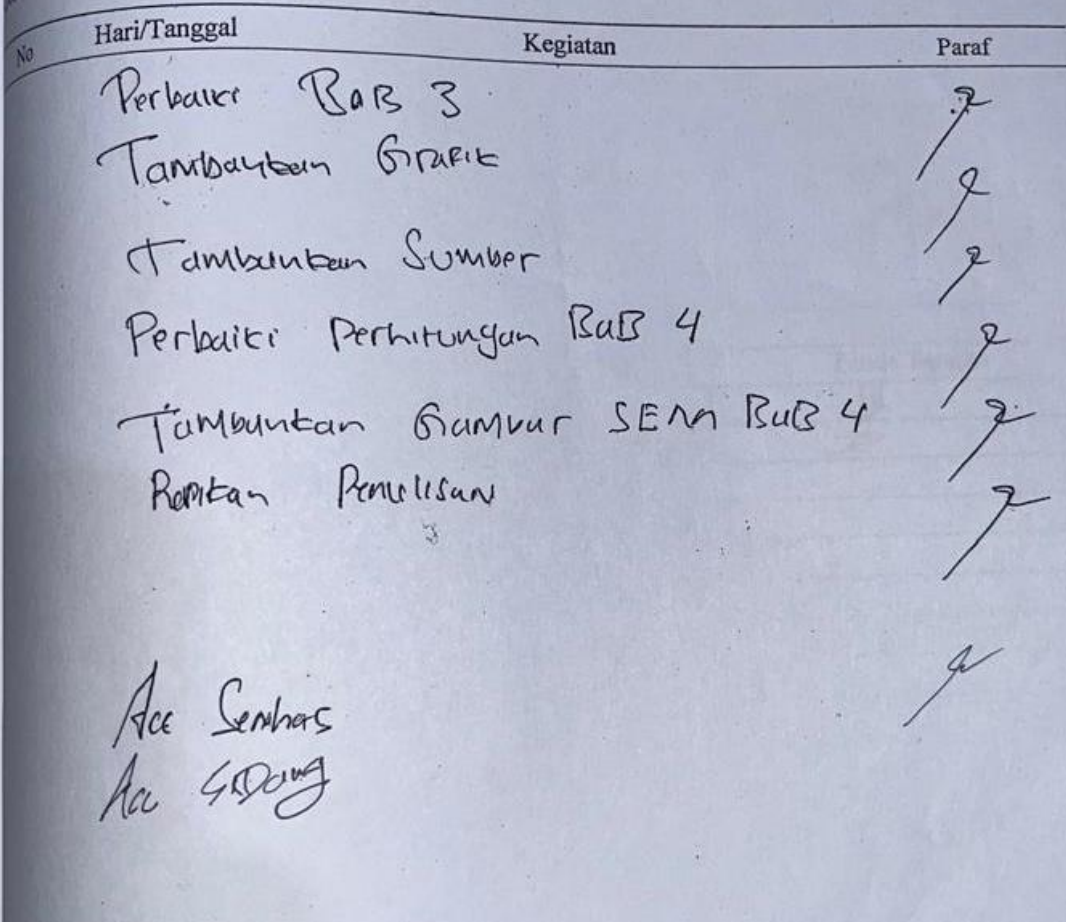 No Hari/Tanggal Kegiatan Paraf
Perbaiki BaB 3
Tambahkan Grafik
Tambahkan Sumber
Perbaiki Perhitungan BaB 4
Tambahkan Gambar SEM BaB 4
Rapikan Penulisan
Acc Semhas
Acc SiDang